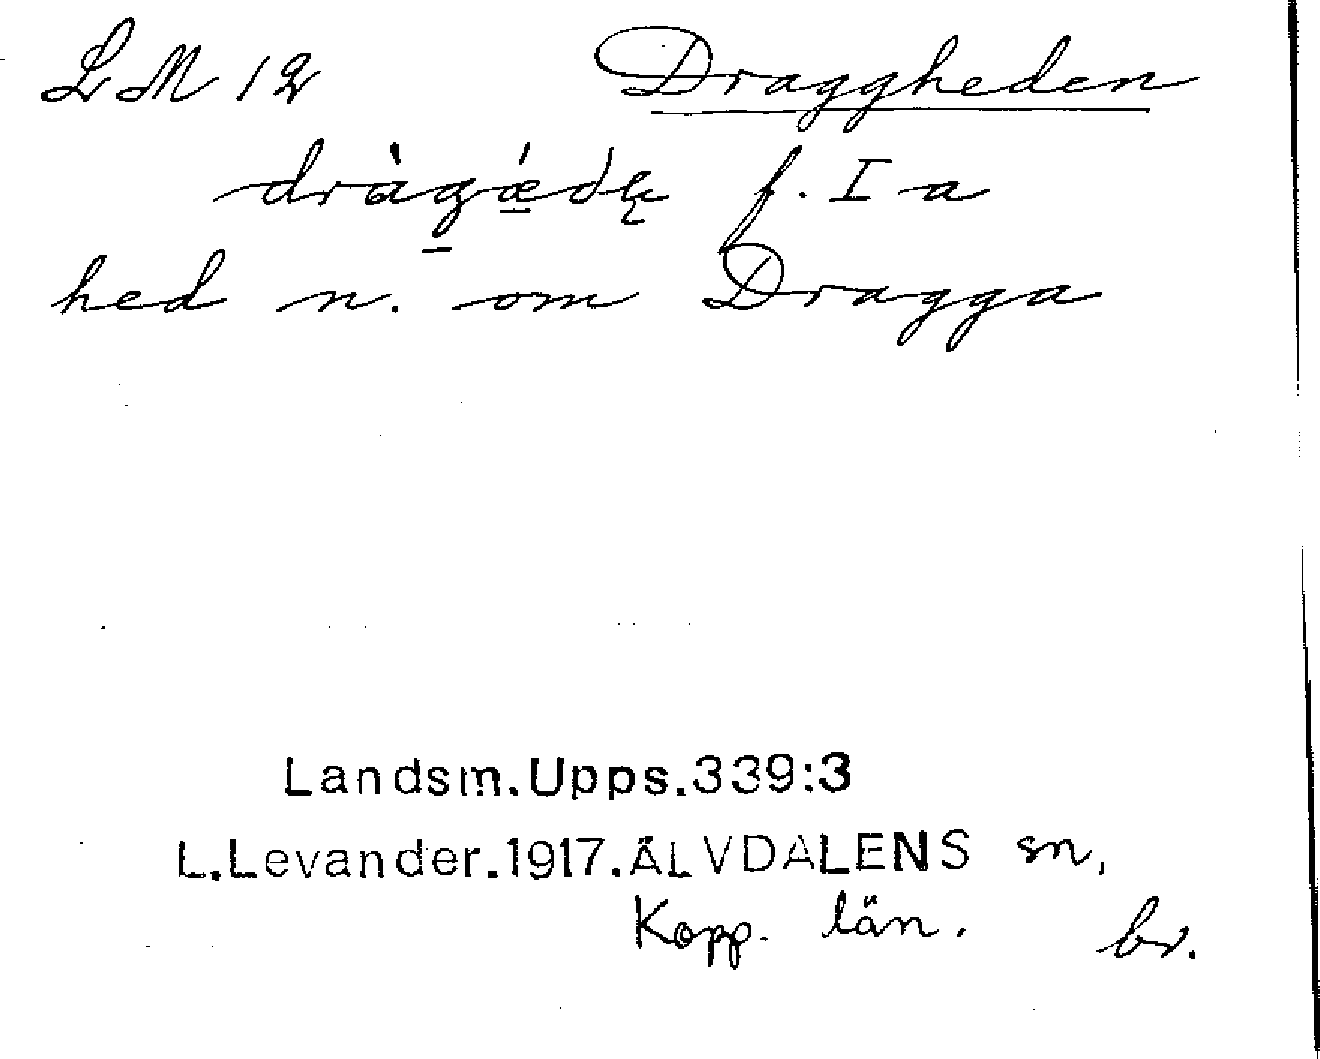 LM 12 Draggheden
dràgǽdę f. I a
hed n. om Dragga
Landsm.Upps.339:3
L.Levander.1917.ÄLVDALENS sn,
Kopp. län. br.